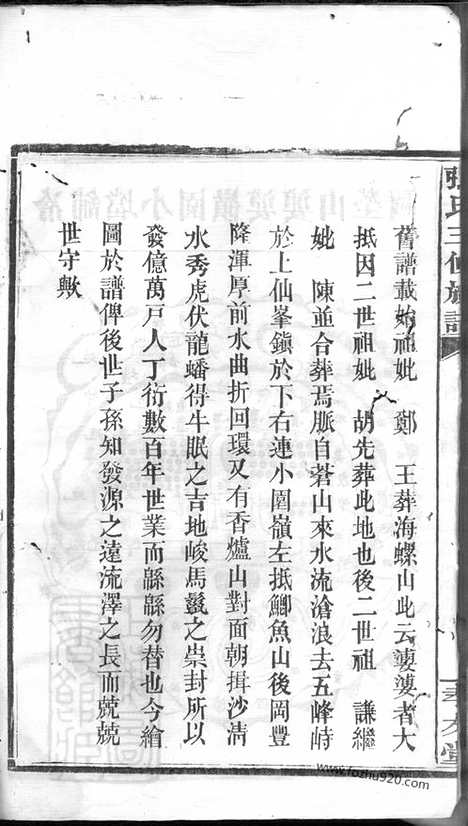 張氏三修族譜
舊譜載始祖妣　鄭　王葬海螺山此云䕯䕯者大
抵因二世祖妣　胡先葬此地也後二世祖　謙繼
妣　陳並合葬焉脈自蒼山來水流滄浪去五峰峙
於上仙峯鎮於下右連小圍嶺左抵鯽魚山後岡豐
隆渾厚前水曲折回環又有香爐山對面朝揖沙清
水秀虎伏龍蟠得牛眠之吉地峻馬鬣之崇封所以
發億萬戶人丁衍數百年世業而緜緜勿替也今繪
圖於譜俾後世子孫知發源之遠流澤之長而兢兢
世守歟
孝友堂
www.fozhu920.com